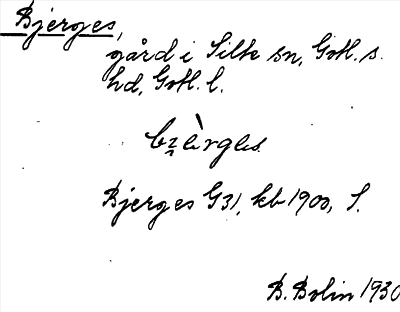 Bjerges,
gård i Silte sn, Gotl. s.
hd, Gotl. l.
Bjerges G31, kb 1900, S.
B. Bolin 1930